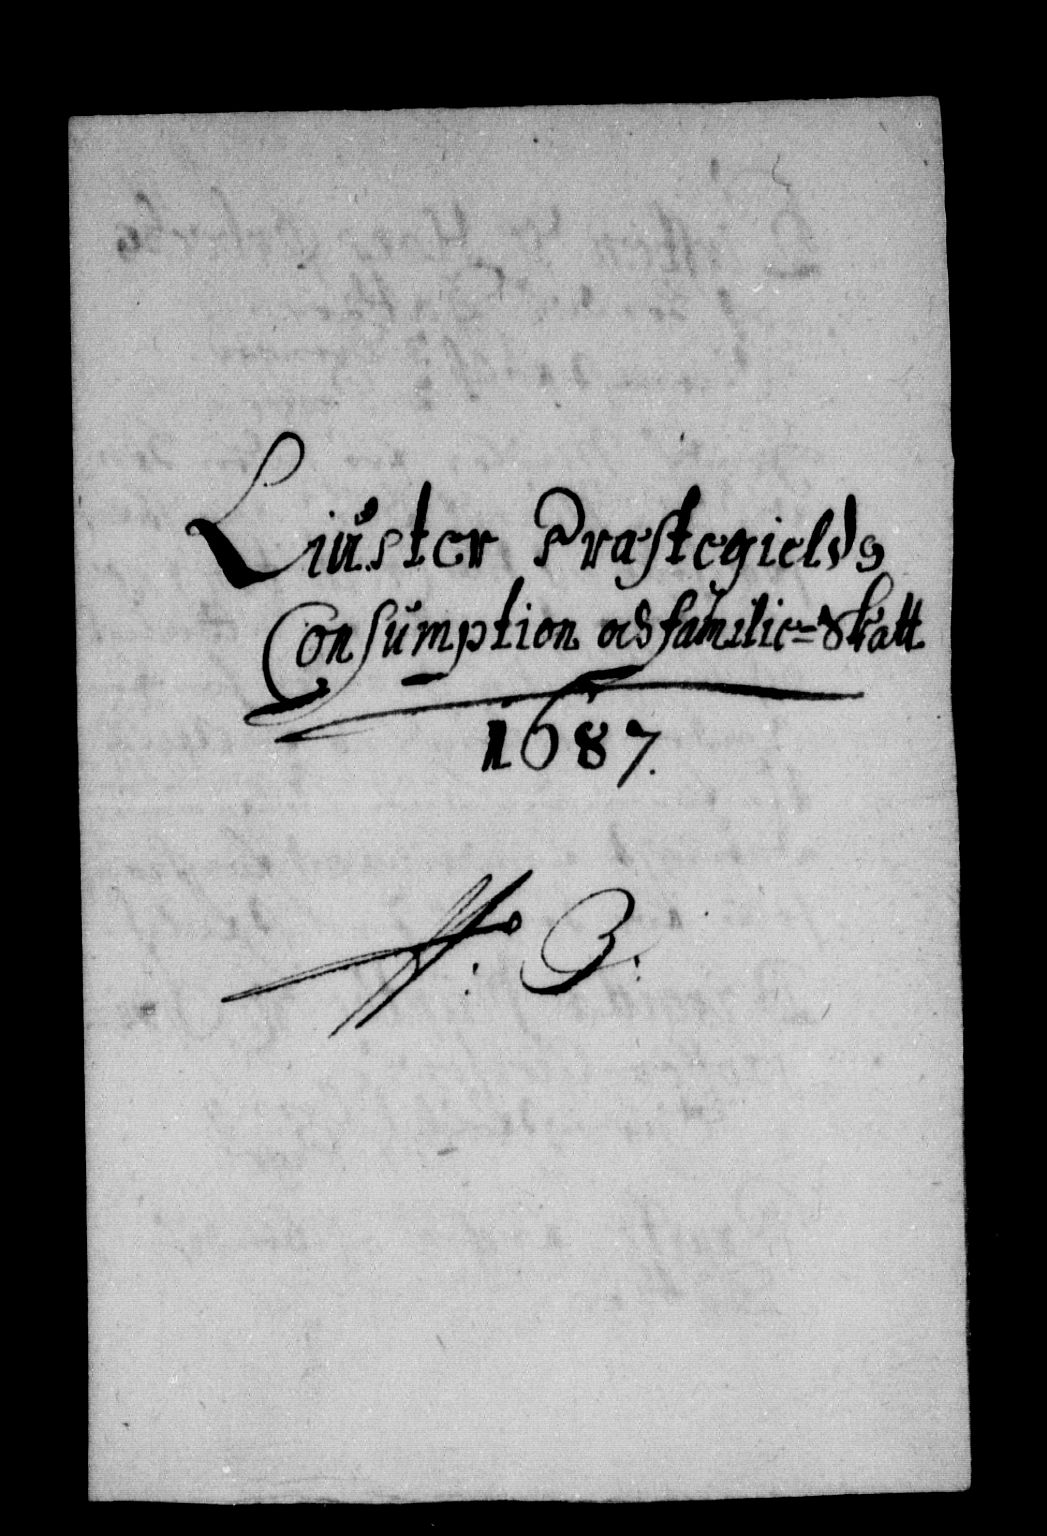 Liuster Præstegields
Consumption od familie=Skatt
1687.
N: 3: